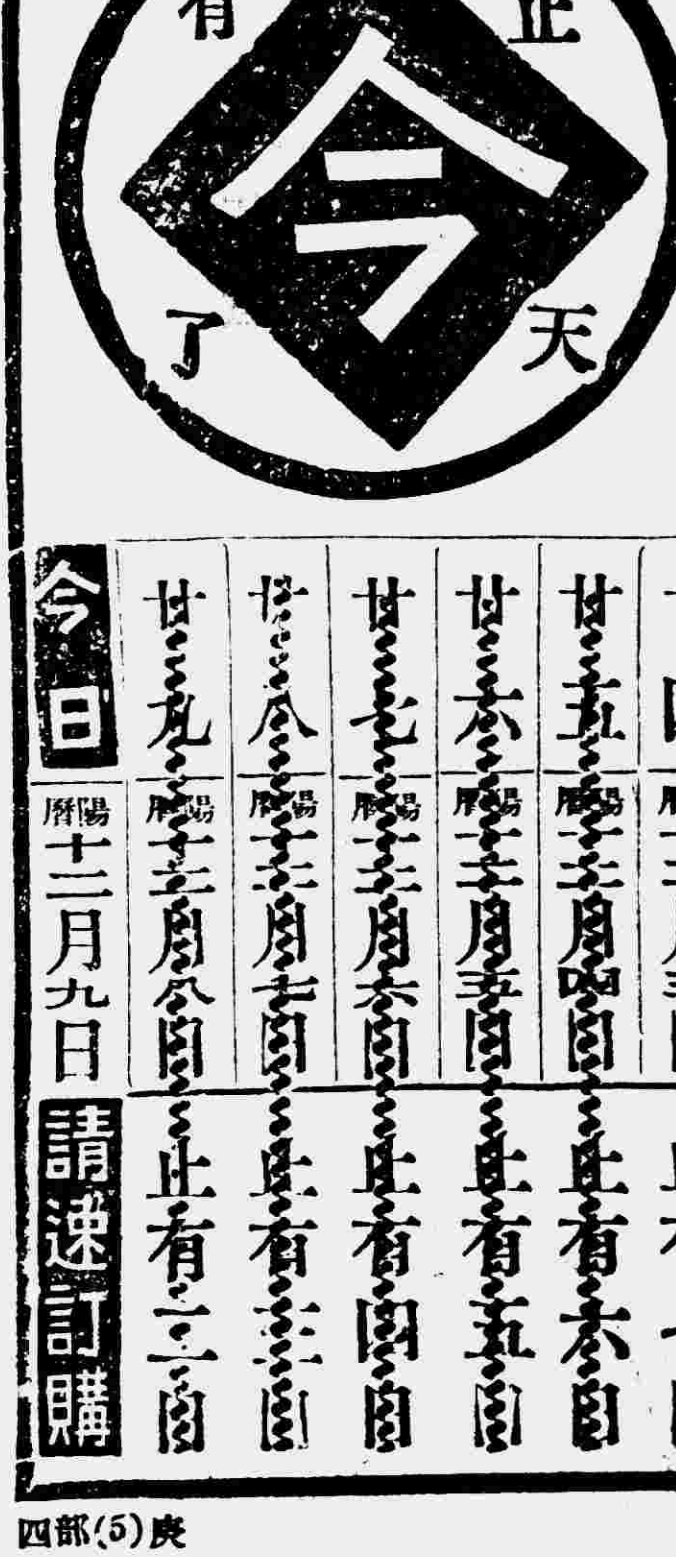 止有
今
天了
廿五 陽曆十二月四日 止有六日
廿六 陽曆十二月五日 止有五日
廿七 陽曆十二月六日 止有四日
廿八 陽曆十二月七日 止有三日
廿九 陽曆十二月八日 止有二日
今日 陽曆十二月九日 請速訂購
四部(5)庚